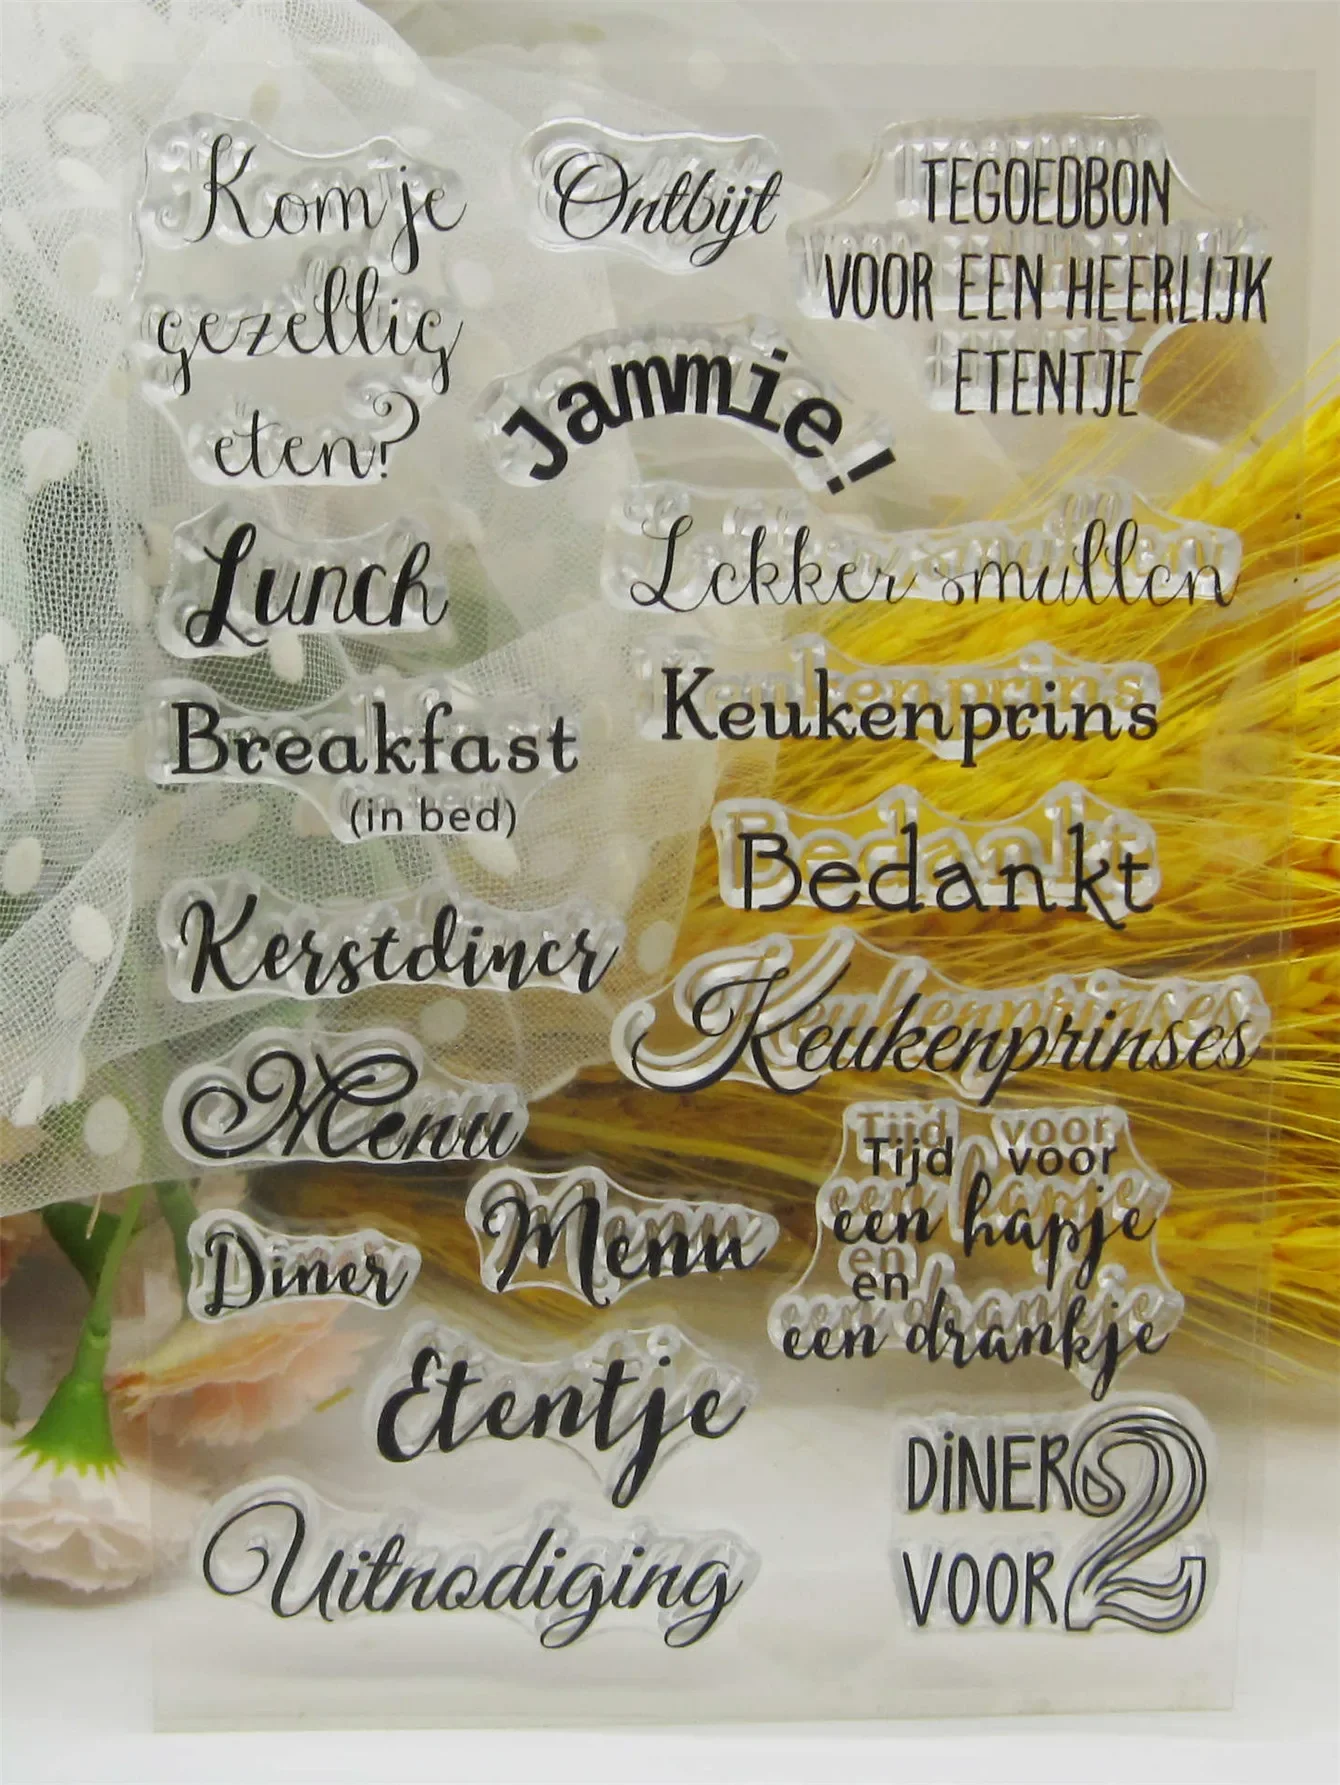 Kom je
gezellig
eten?
Ontbijt
TEGOEDBON
VOOR EEN HEERLIJK
ETENTJE
Jammie!
Lunch
Lekker smullen
Breakfast
(in bed)
Keukenprins
Bedankt
Kerstdiner
Keukenprinses
Menu
Tijd voor
een hapje
en
een drankje
Menu
Diner
Etentje
DiNER
VOOR 2
Uitnodiging